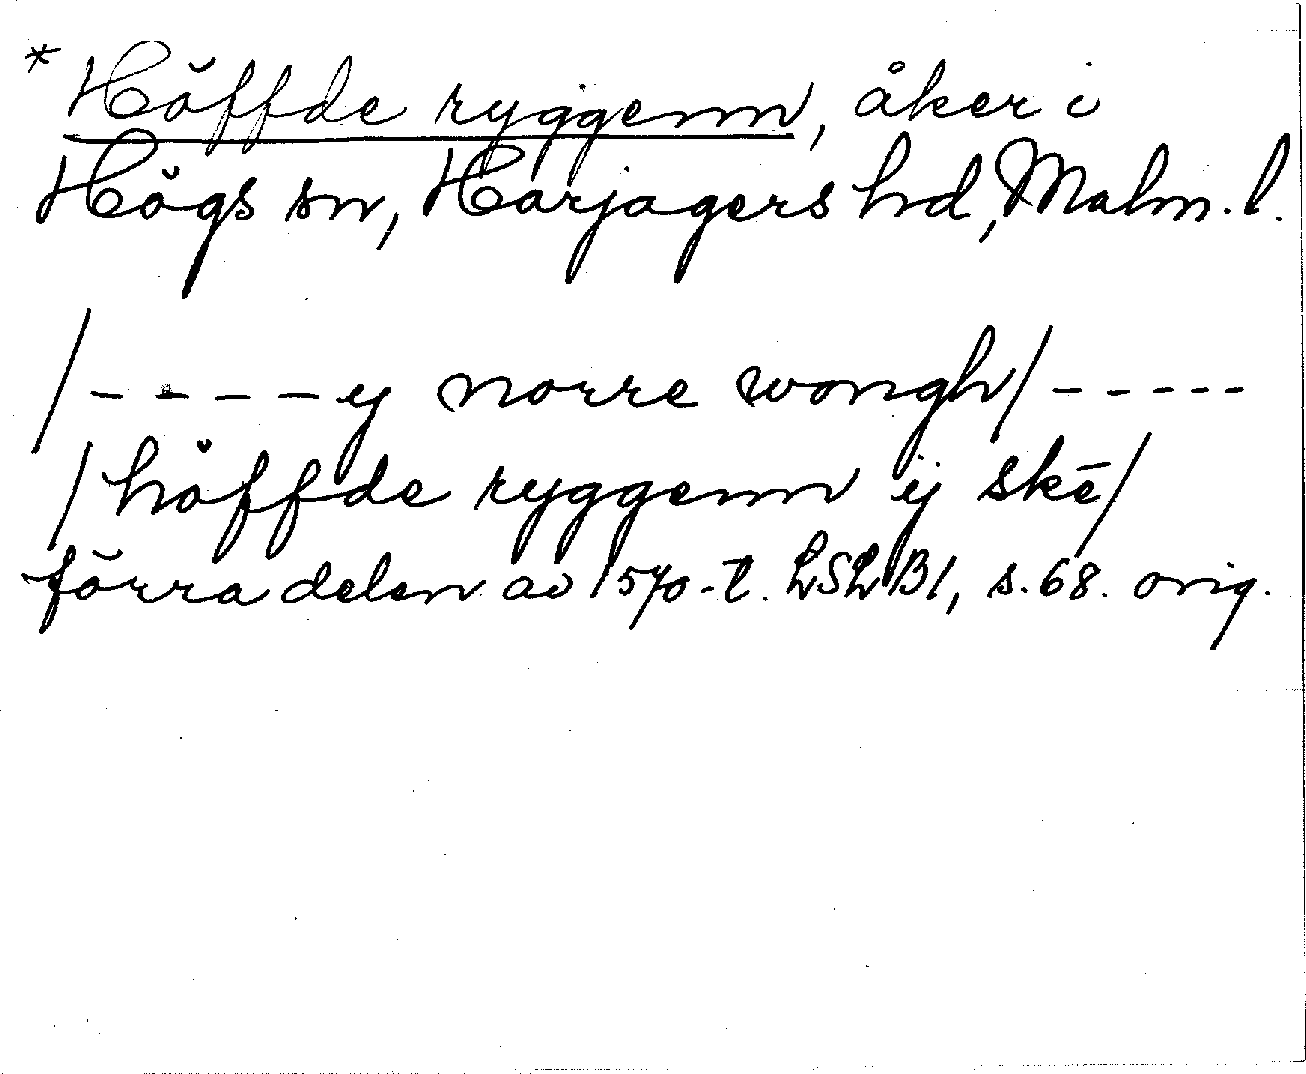 * Höffde ryggenn, åker i
Högs sn, Harjagers hd, Malm. l.
/ - - - - ij norre wongh / - - - - -
/ höffde ryggenn ij skē /
förra delen av 1570-t. LSLB1, s. 68. orig.